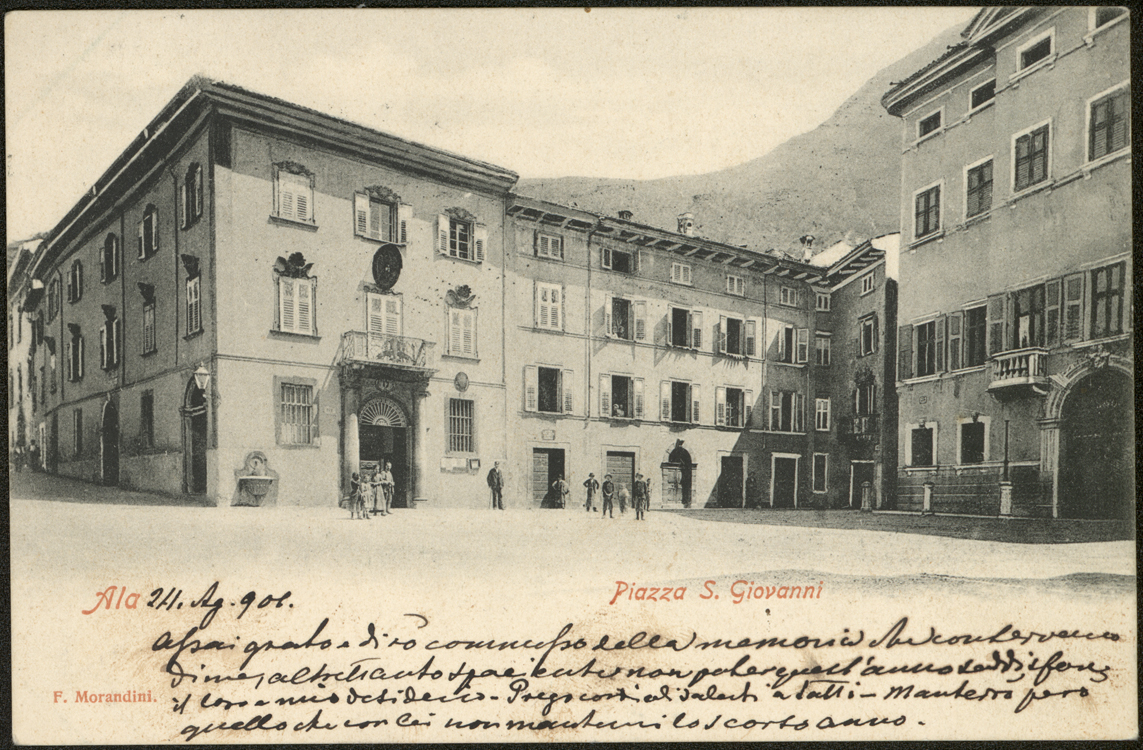 Ala 24. Ag. 901.
Piazza S. Giovanni
Assai grato e dirò commosso della memoria che conservano
di me, altrettanto spiacente non poter quest'anno soddisfare
il loro e mio desiderio - Prego cordiali saluti a tutti - Manterrò però
quello che con lei non mantenni lo scorso anno.
F. Morandini.